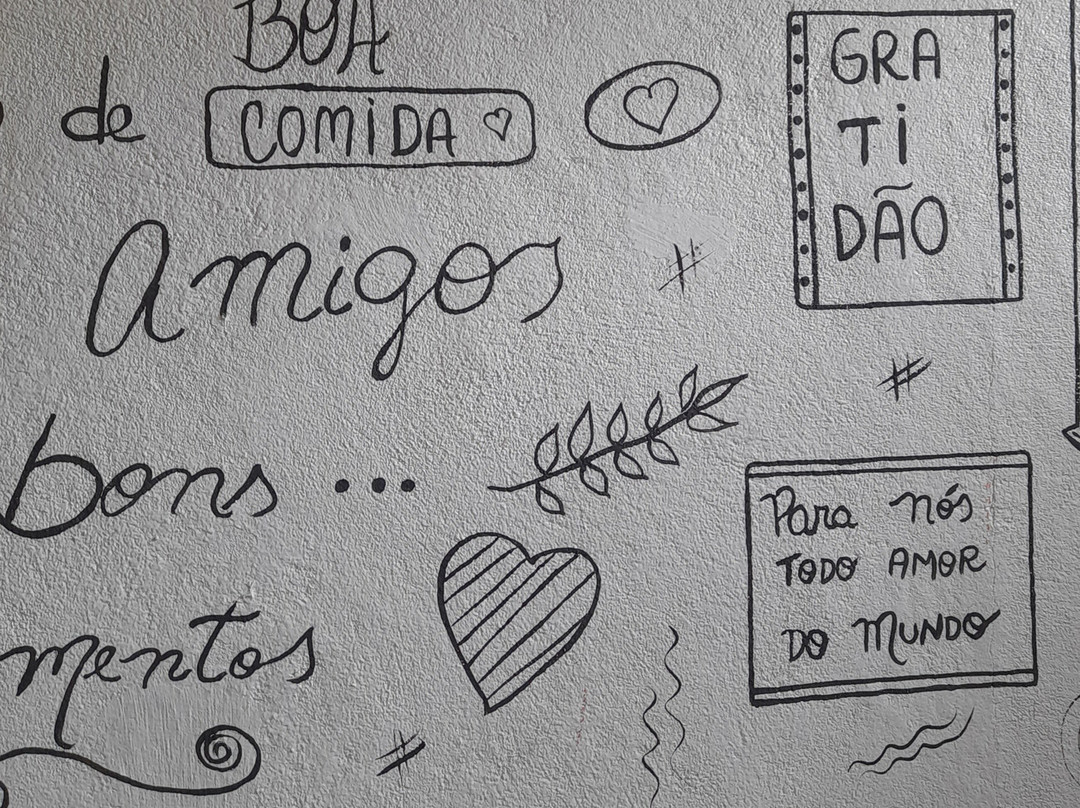 BOA
de
COMIDA
Amigos
#
bons ...
mentos
#
GRA
TI
DÃO
#
Para nós
TODO AMOR
DO MUNDO